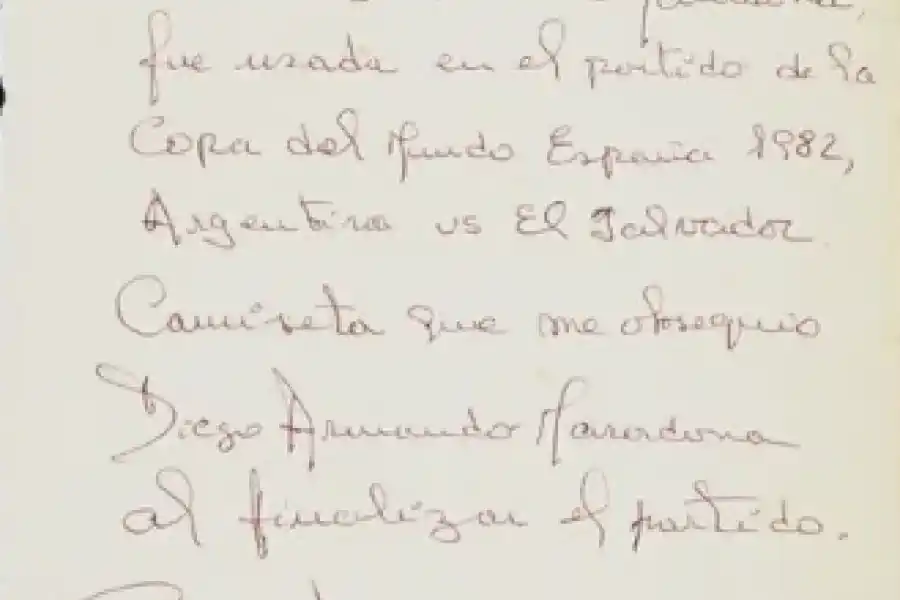 fue usada en el partido de la
Copa del Mundo España 1982,
Argentina vs El Salvador
Camiseta que me obsequio
Diego Armando Maradona
al finalizar el partido.